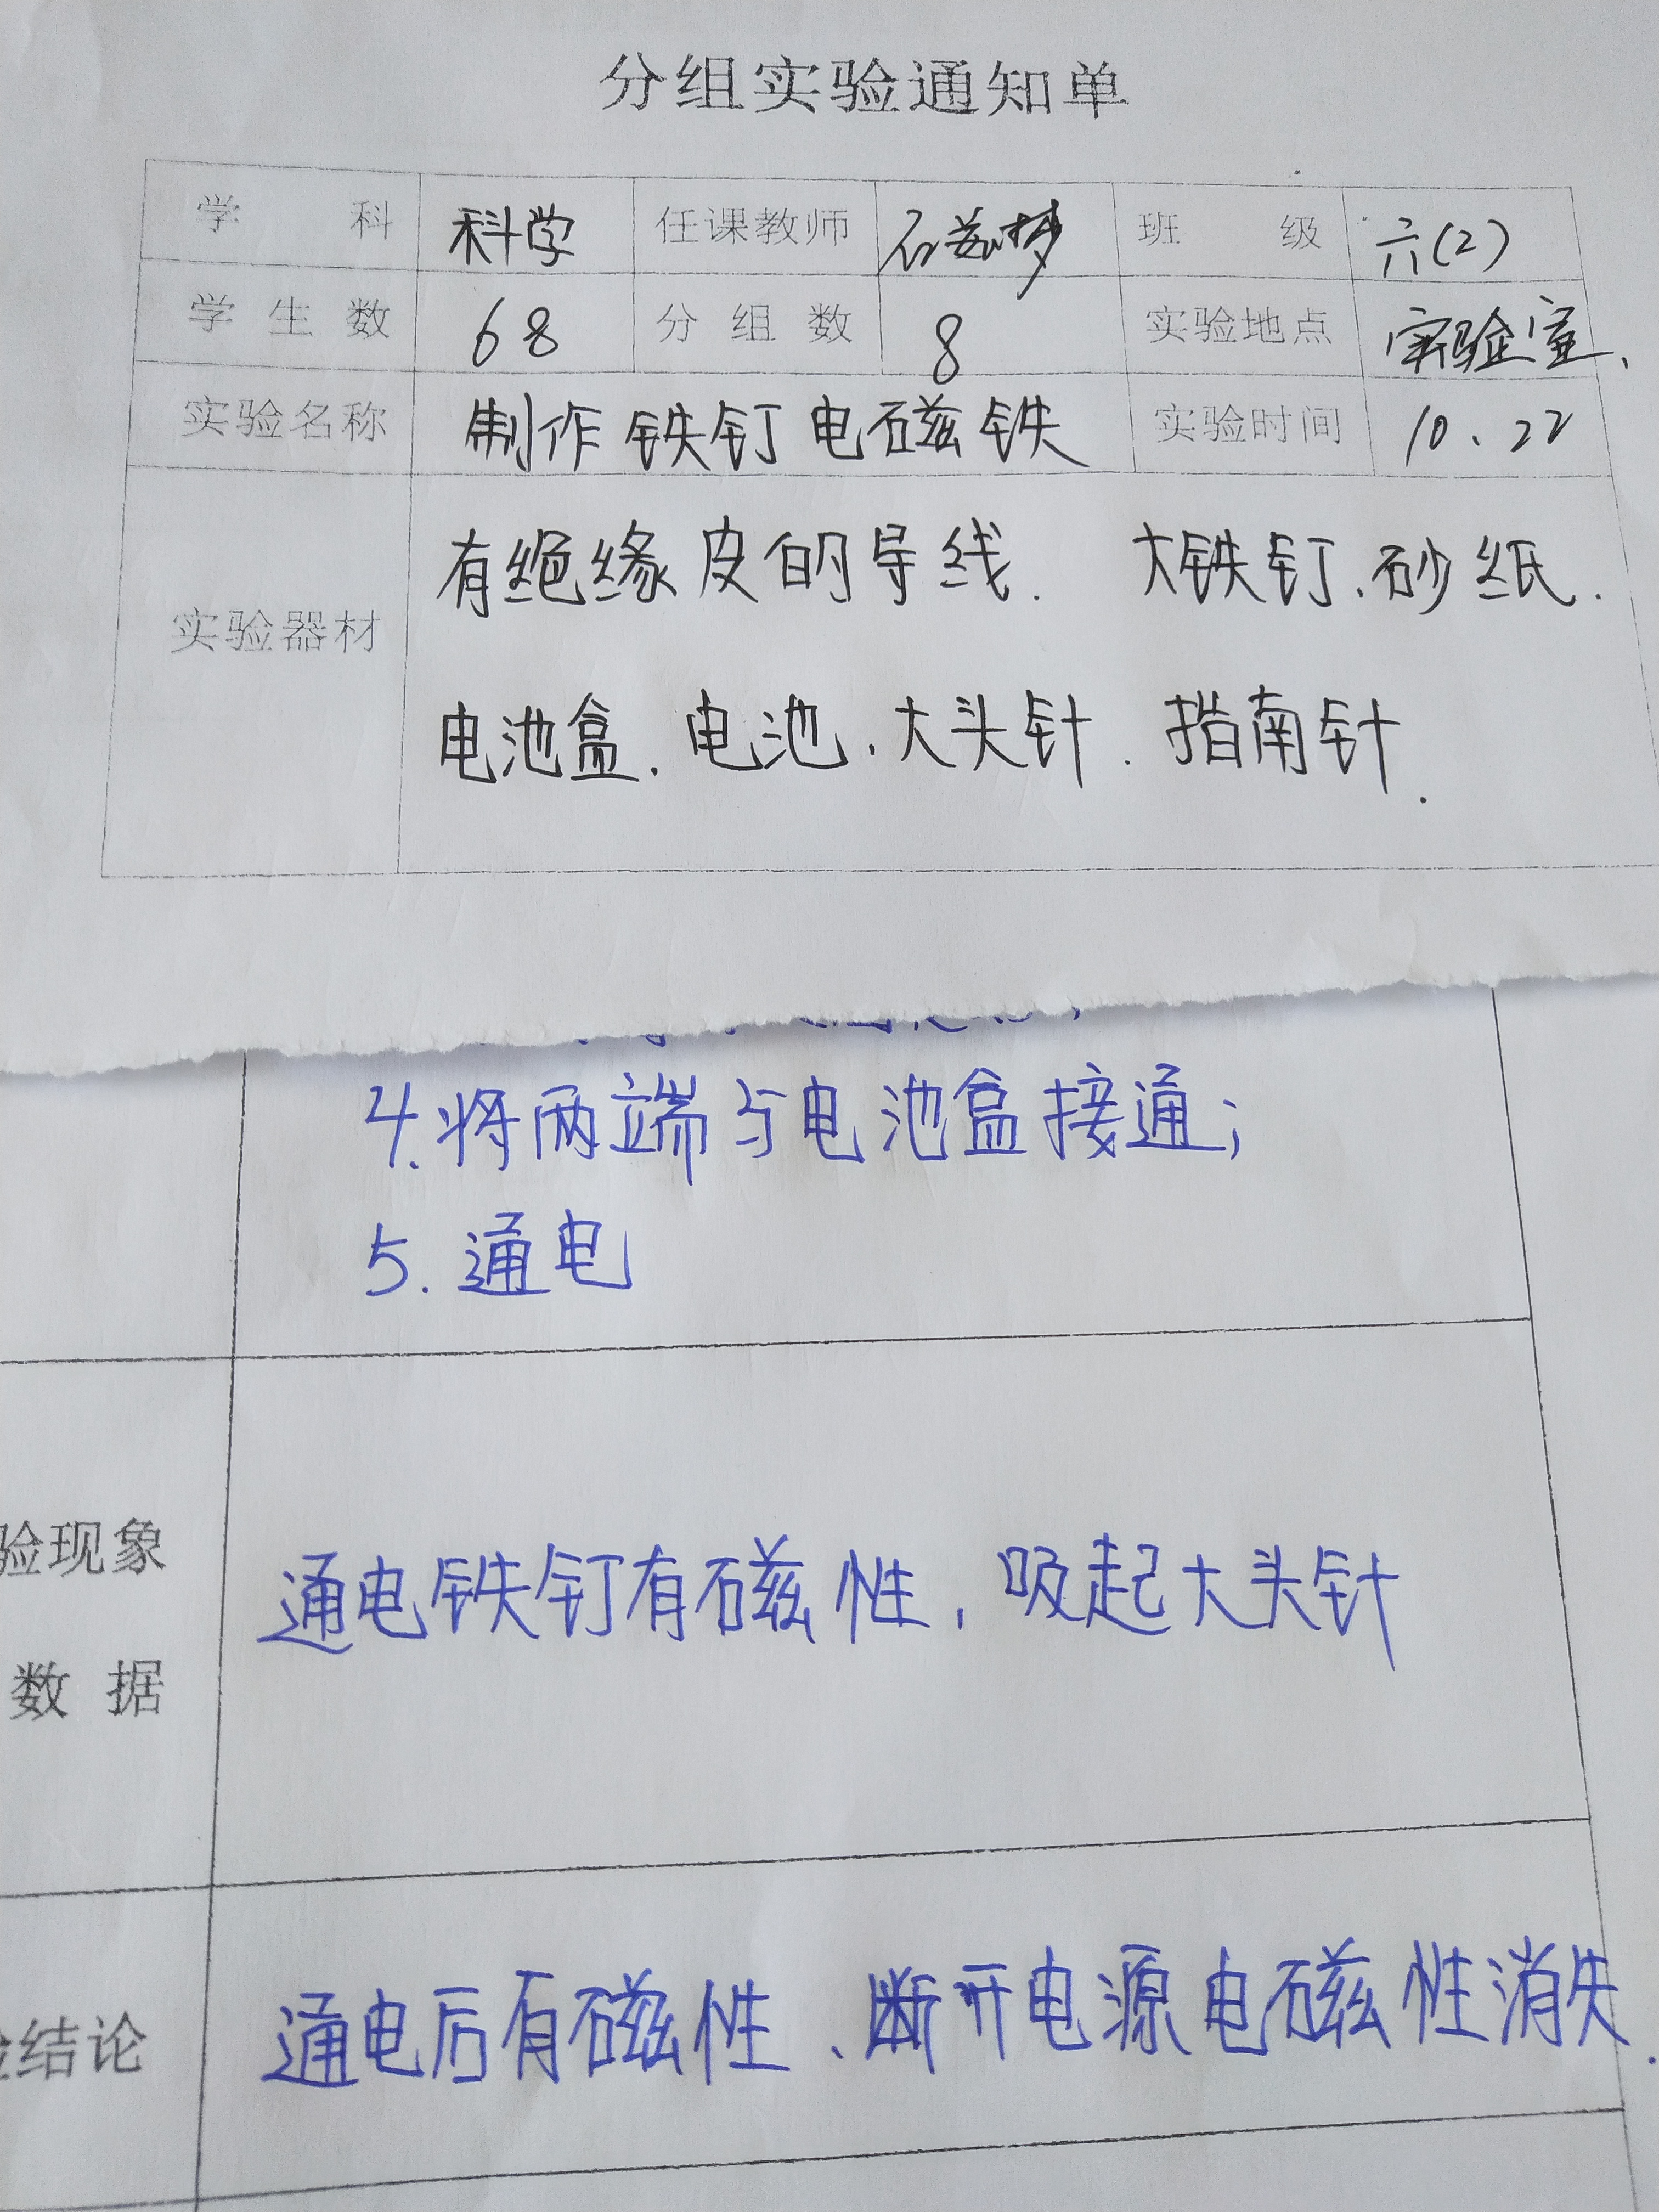 分组实验通知单
学 科 科学 任课教师 石 梦 班 级 六(2)
学生数 68 分组数 8 实验地点 实验室.
实验名称 制作铁钉电磁铁 实验时间 10、22
有绝缘皮的导线. 大铁钉、砂纸.
实验器材
电池盒、电池、大头针. 指南针.
4.将两端与电池盒接通;
5.通电
验现象
通电铁钉有磁性,吸起大头针
数据
结论 通电后有磁性、断开电源电磁性消失.